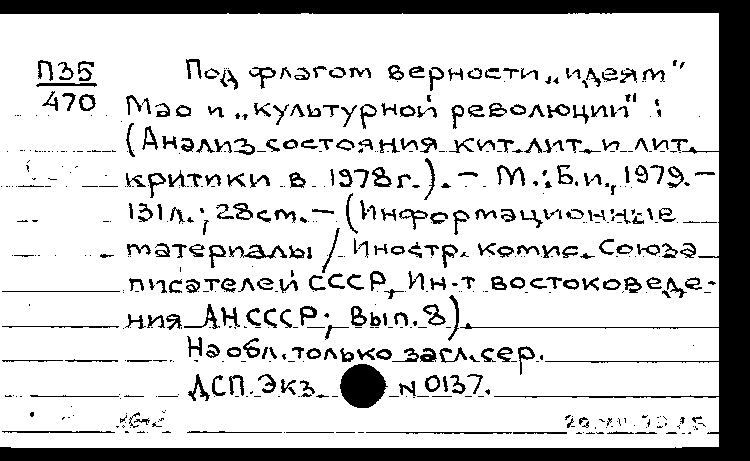 П35
470
Под флагом верности „идеям"
Мао и „культурной революции" :
(Анализ состояния кит. лит. и лит.
критики в 1978 г.). – М.: Б.и., 1979. –
131 л.; 28 см. – (Информационные
материалы / Иностр. комис. Союза
писателей СССР, Ин-т востоковеде-
ния АН СССР; Вып. 8).
На обл. только загл. сер.
ДСП. Экз. N 0137.